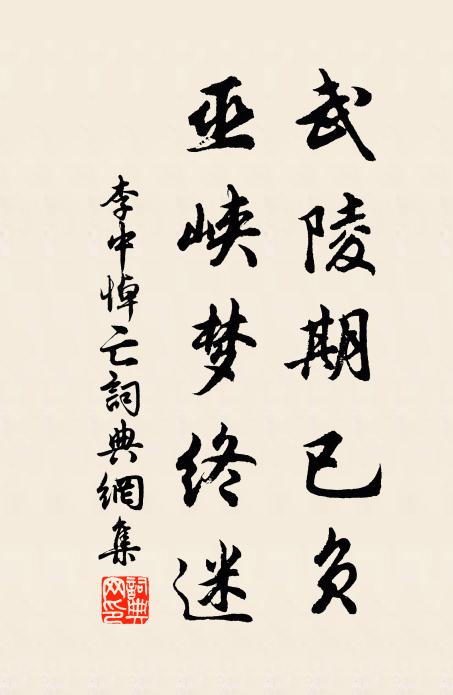 武陵期已负
巫峡梦终迷
李中悼亡詞典網集
詞典网印